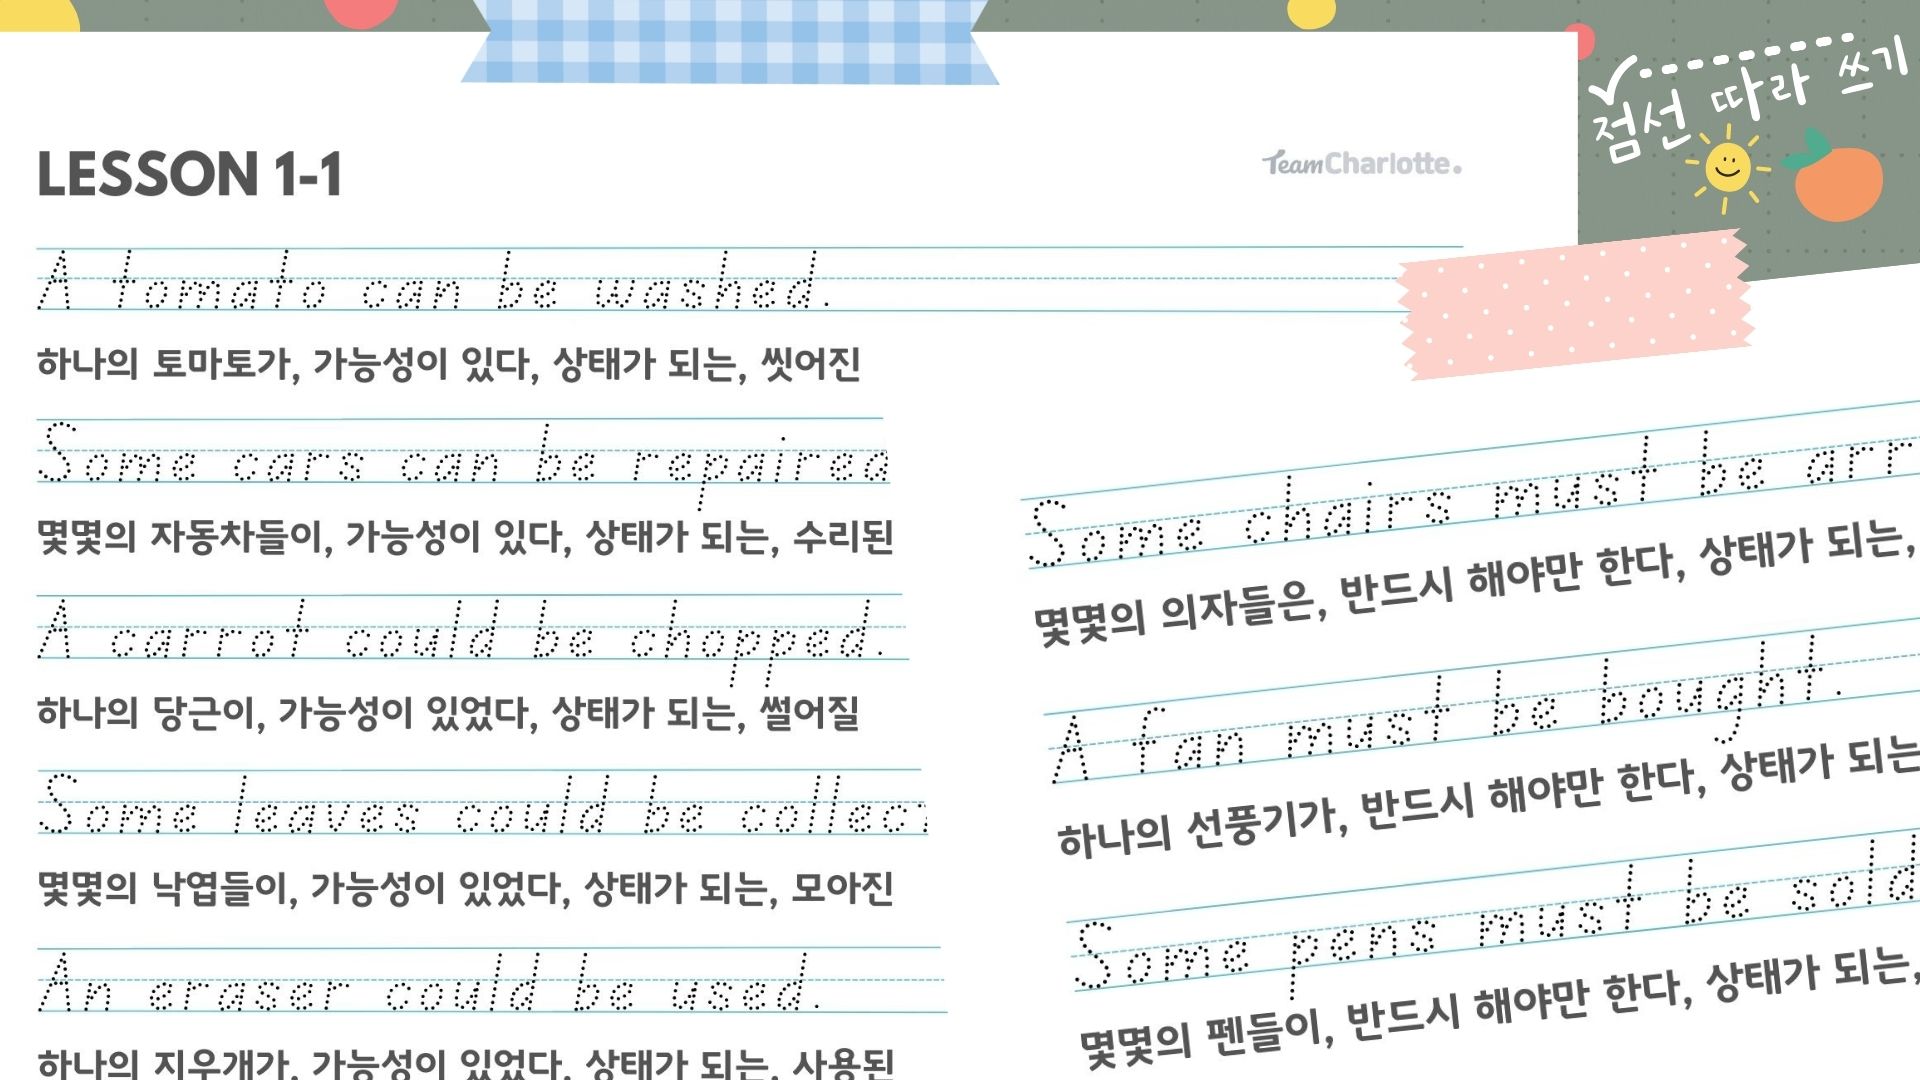 점선 따라 쓰기
LESSON 1-1
TeamCharlotte.
A tomato can be washed.
하나의 토마토가, 가능성이 있다, 상태가 되는, 씻어진
Some cars can be repaired
몇몇의 자동차들이, 가능성이 있다, 상태가 되는, 수리된
A carrot could be chopped.
하나의 당근이, 가능성이 있었다, 상태가 되는, 썰어질
Some leaves could be collec
몇몇의 낙엽들이, 가능성이 있었다, 상태가 되는, 모아진
An eraser could be used.
하나의 지우개가, 가능성이 있었다, 상태가 되는, 사용된
Some chairs must be arr
몇몇의 의자들은, 반드시 해야만 한다, 상태가 되는,
A fan must be bought.
하나의 선풍기가, 반드시 해야만 한다, 상태가 되는
Some pens must be sold
몇몇의 펜들이, 반드시 해야만 한다, 상태가 되는,